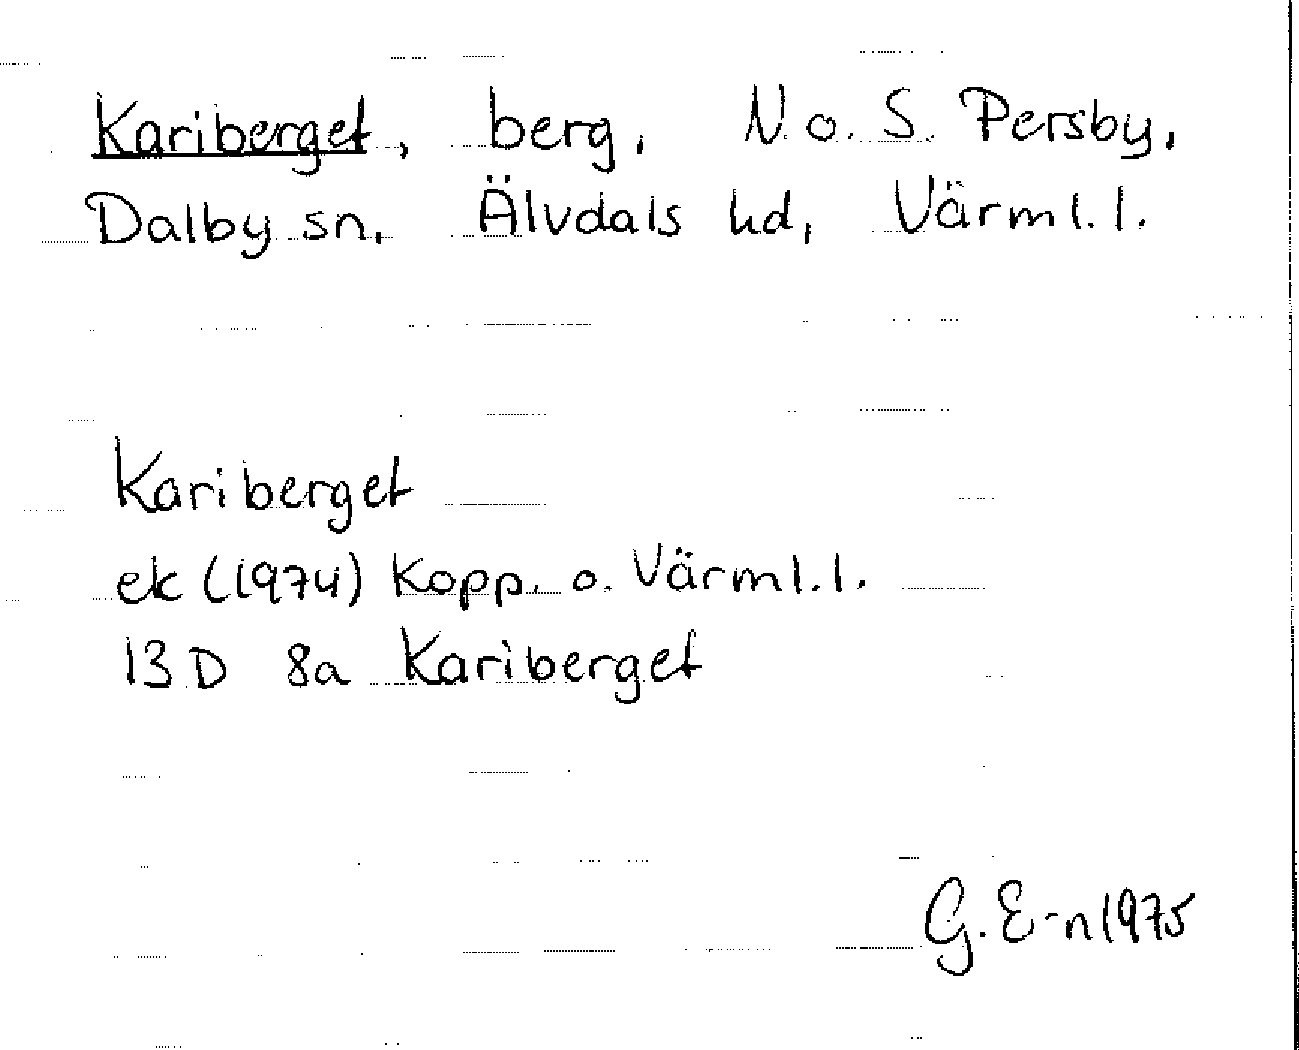 Kariberget, berg, N. o. S. Persby,
Dalby sn, Älvdals hd, Värml. l.
Kariberget
ek (1974) Kopp. o. Värml. l.
13 D 8a Kariberget
G. E-n 1975